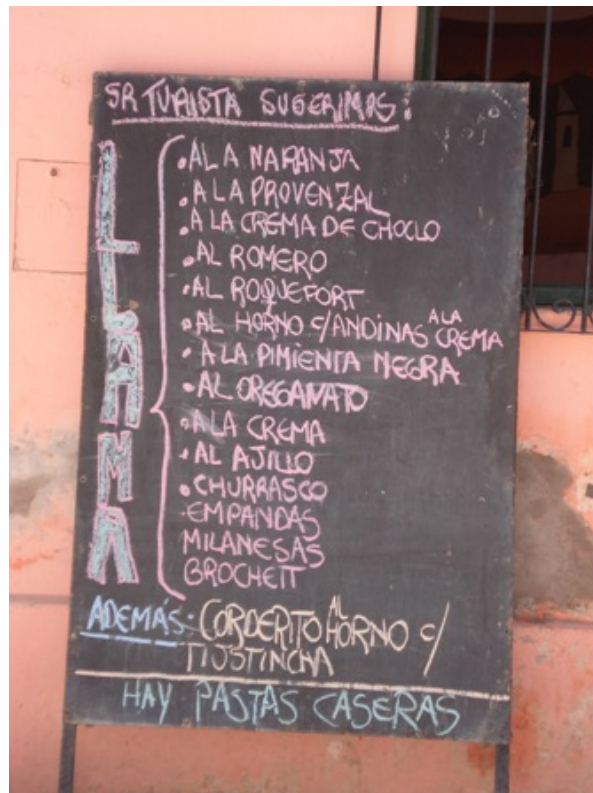 SR TURISTA SUGERIMOS:
LLAMA
• AL A NARANJA
• A LA PROVENZAL
• A LA CREMA DE CHOCLO
• AL ROMERO
• AL ROQUEFORT
• AL HORNO C/ANDINAS A LA CREMA
• A LA PIMIENTA NEGRA
• AL OREGANATO
• A LA CREMA
• AL AJILLO
• CHURRASCO
EMPANDAS
MILANESAS
BROCHETT
ADEMÁS: CORDERITO AL HORNO C/
TIJSTINCHA
HAY PASTAS CASERAS